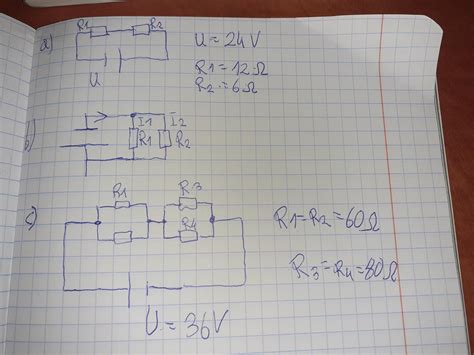 a)
R1 R2
U
U = 24V
R1 = 12 Ω
R2 = 6 Ω
b)
I1 I2
R1 R2
c)
R1 R3
R4
R1 = R2 = 60Ω
R3 = R4 = 80Ω
U = 36V